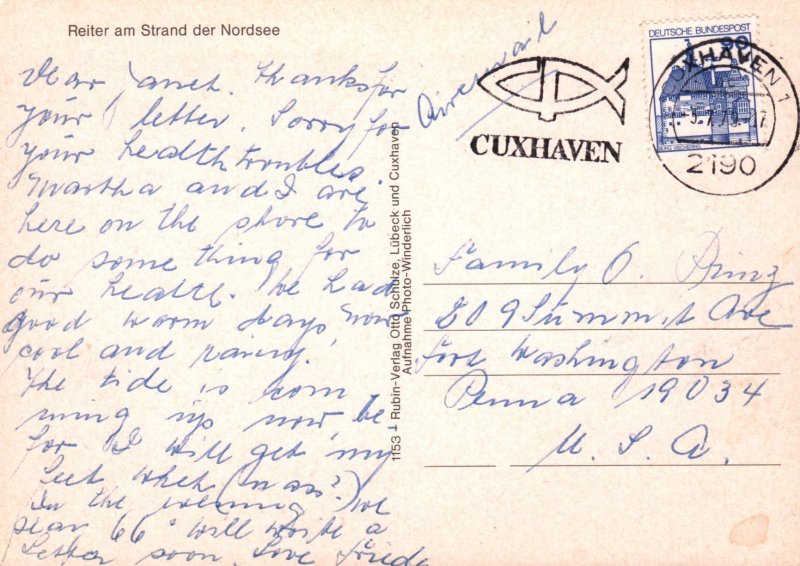 Reiter am Strand der Nordsee
Dear Janet. Thanks for
your letter. Sorry for
your health troubles.
Martha and I are
here on the shore to
do some thing for
our health. We had
good warm days, now
cool and rainy.
The tide is com
ming up now, be
for I will get my
feet whet (nass?)
In the evening we
66° will write a
Letter soon. Love Frieda
Airmail
1153 Rubin-Verlag Otto Schulze, Lübeck und Cuxhaven
Aufnahme Photo-Winderlich
CUXHAVEN
DEUTSCHE BUNDESPOST
90
CUXHAVEN 1
2190
Family O. Prinz
509 Summit Ave
Fort Washington
Penna 19034
U. S. A.